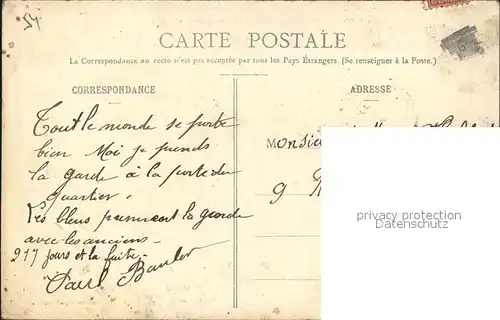 54
CARTE POSTALE
La Correspondance au recto n'est pas acceptée par tous les Pays Étrangers. (Se renseigner à la Poste.)
CORRESPONDANCE
ADRESSE
Tout le monde se porte
bien Moi je prends
la garde à la porte du
quartier.
Les bleus prennent la garde
avec les anciens –
917 jours et la fuite –
Paul
Monsieu
9
privacy protection
Datenschutz